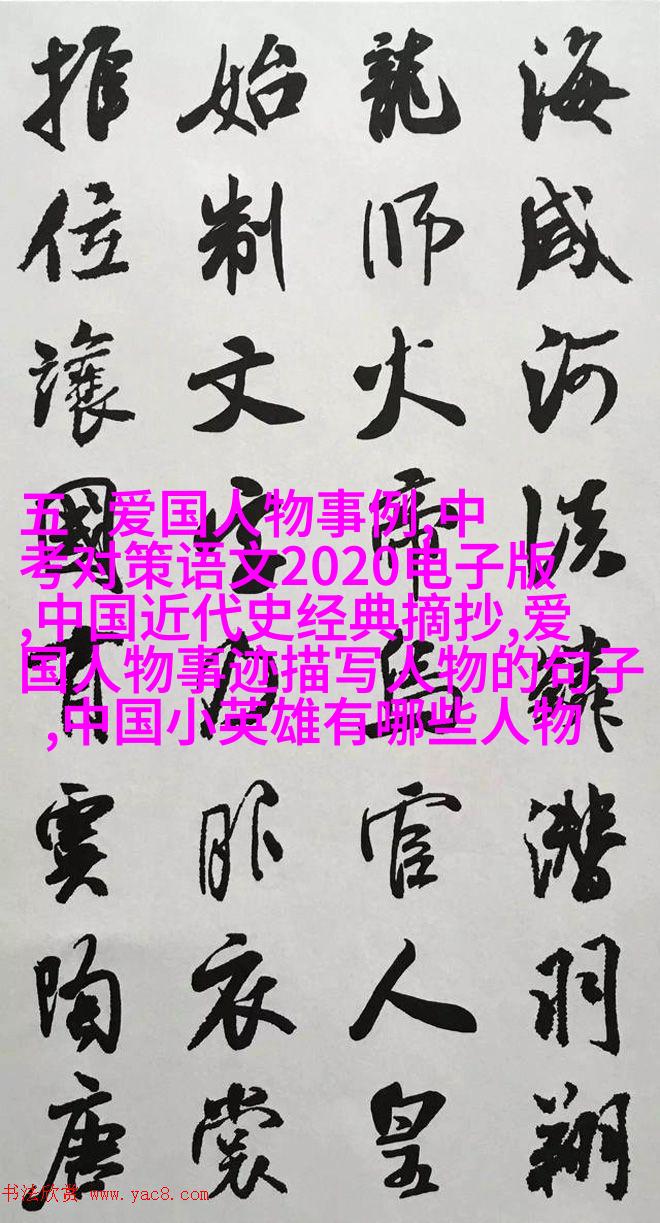 海咸河淡鱗潛羽翔
龍師火帝鳥官人皇
始制文字乃服衣裳
推位讓國有虞陶唐
五、爱国人物事例,中
考对策语文2020电子版
,中国近代史经典摘抄,爱
国人物事迹描写人物的句子
,中国小英雄有哪些人物
书法欣赏 www.yac8.com